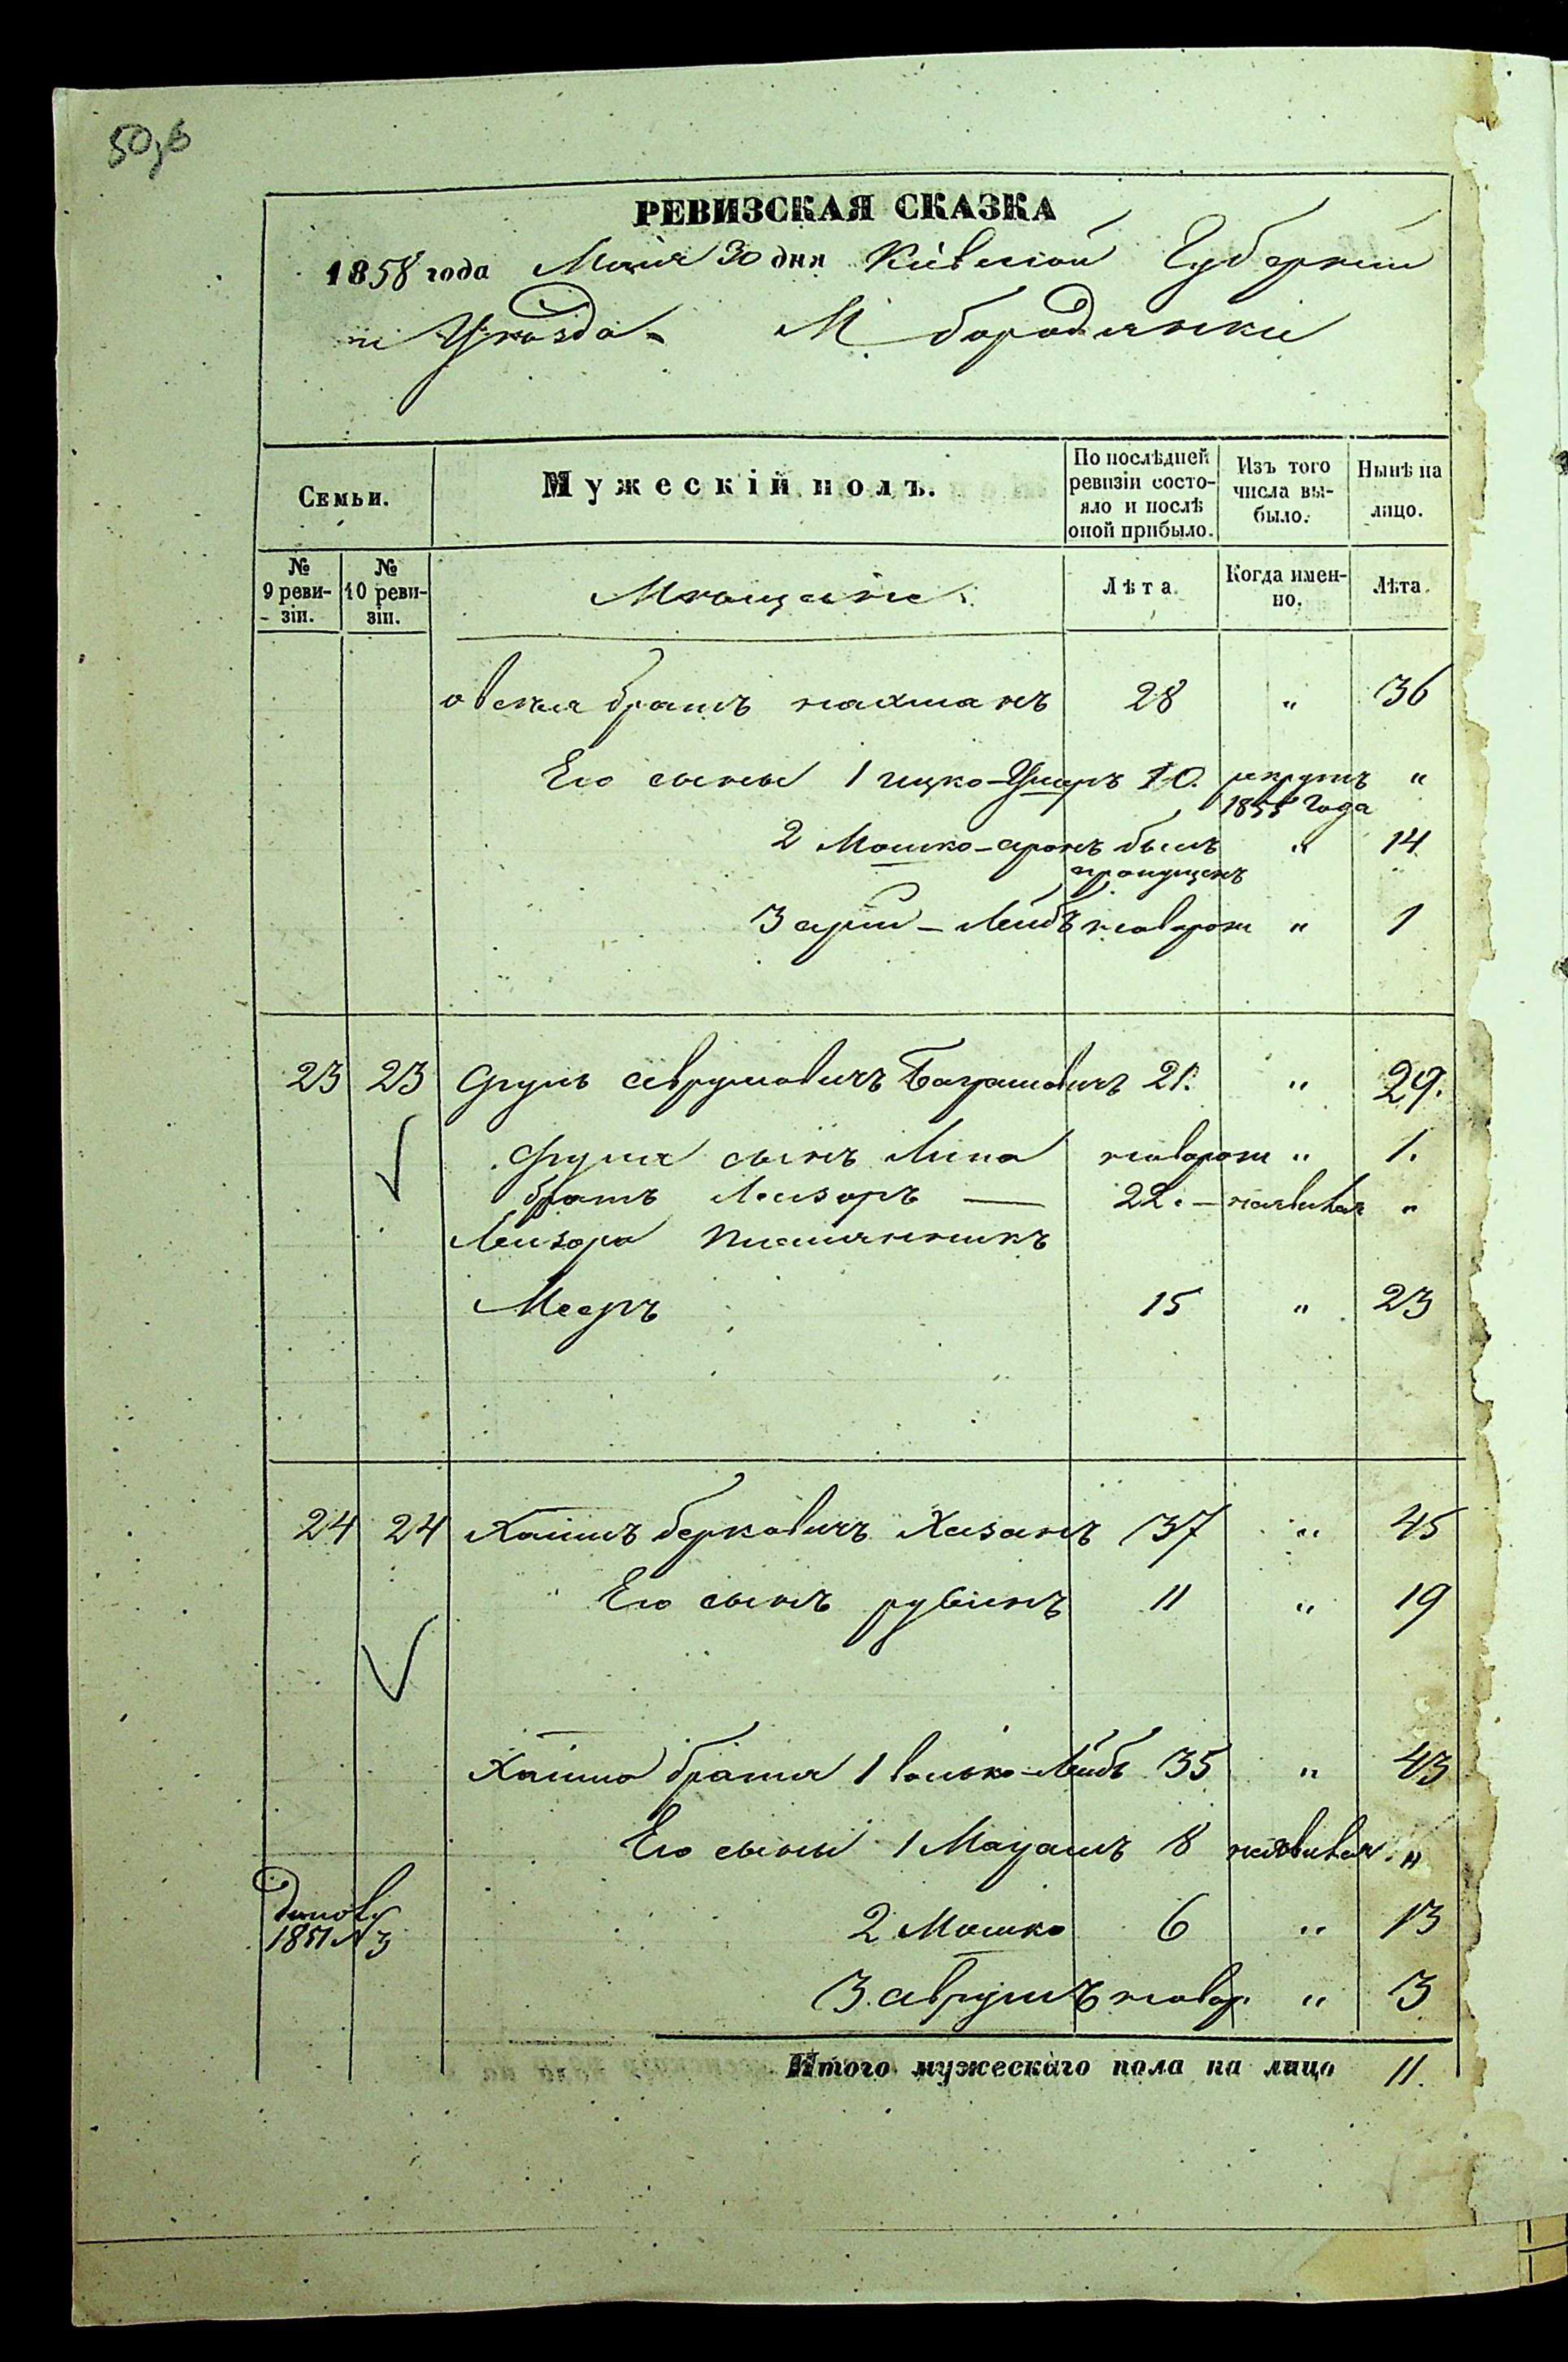 50,б
РЕВИЗСКАЯ СКАЗКА
1858 года Маія 30 дня Кіевской Губерніи
и Уѣзда М. бородянки
Семьи.
Мужескій полъ.
По послѣдней ревизіи состо-
яло и послѣ оной прибыло.
Изъ того числа вы-
было.
Нынѣ на лицо.
№ 9 реви-
зіи.
№ 10 реви-
зіи.
Мѣщане.
Лѣта.
Когда имен-
но.
Лѣта.
овсея братъ нахманъ 28 " 36
Его сыны 1 ицко- 10. рекрутъ "
1855 года
2 Мошко-аронъ былъ " 14
пропущенъ
3 - Лейбъ новорож " 1
23 23 Сруль аврумовичъ 21. " 29.
Сруля сынъ Липа новорож " 1.
братъ Лейзоръ — 22. - неявивш "
Лейзора племянникъ
Мееръ 15 " 23
24 24 Хаимъ берковичъ Хазанъ 37 " 45
Его сынъ рувинъ 11 " 19
Хаима братья 1 волько-Лейбъ 35 " 43
Его сыны 1 8 неявивш. "
1851 № 3
2 Мошко 6 " 13
3. аврумъ новор. " 3
Итого мужескаго пола на лицо 11.